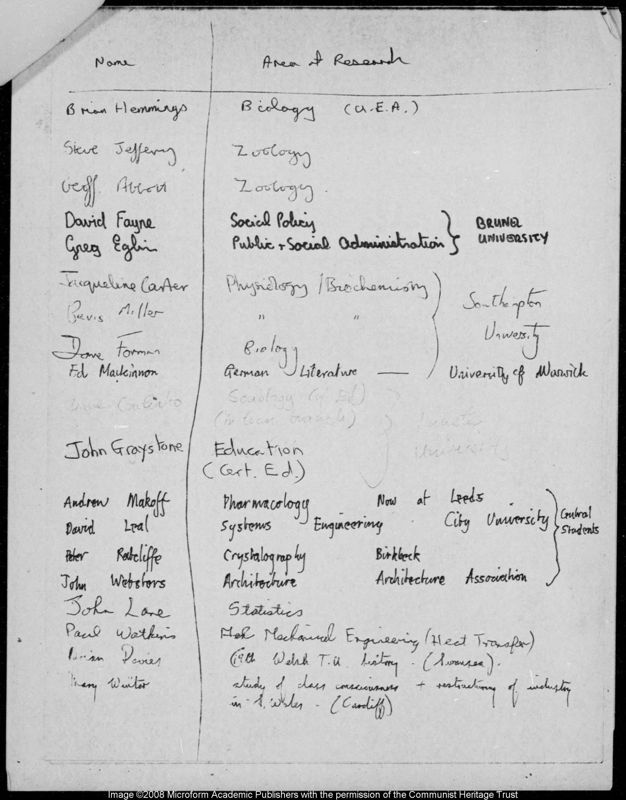 Name Area of Research
Brian Hemmings Biology (U.E.A.)
Steve Jeffery Zoology
Geoff. Abbott Zoology.
David Fayne Social Policy
Greg Eglin Public + Social Administration BRUNEL UNIVERSITY
Jacqueline Carter Physiology / Biochemistry
Bevis Miller " " Southampton University
Dave Forman Biology
Ed Mackinnon German Literature — University of Warwick
Sociology
University
John Graystone Education
(Cert. Ed.)
Andrew Makoff Pharmacology Now at Leeds
David Leal Systems Engineering City University Central Students
Peter Ratcliffe Crystalography Birkbeck
John Websters Architecture Architecture Association
John Lane Statistics
Paul Watkins Mechanical Engineering (Heat Transfer)
Brian Davies 19th Welsh T.U. history. (Swansea).
Mary Winter study of class consciousness + restructuring of industry
in S. Wales - (Cardiff)
Image ©2008 Microform Academic Publishers with the permission of the Communist Heritage Trust